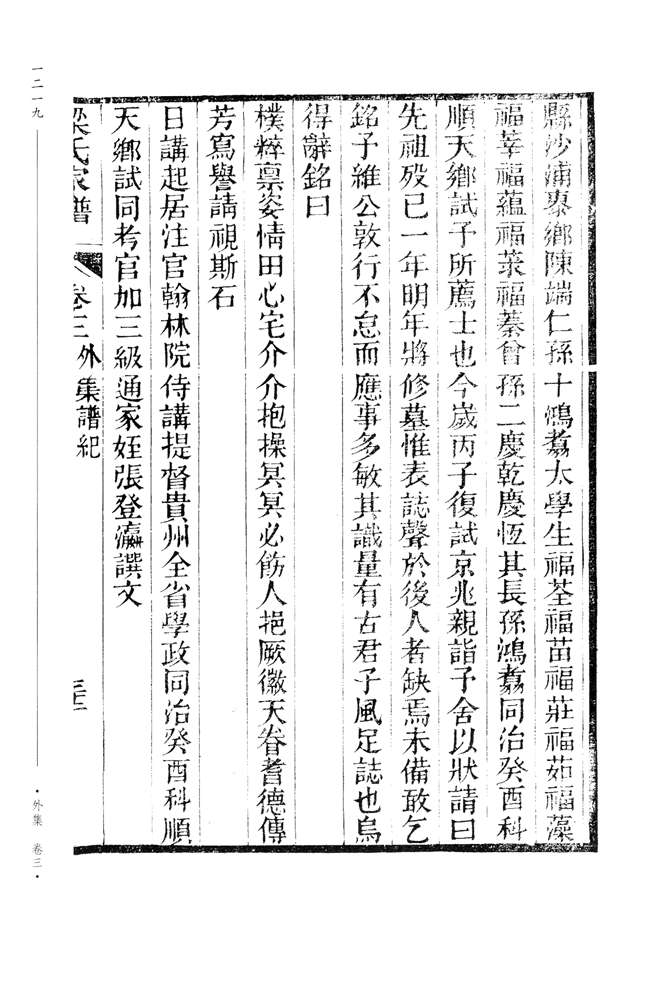 縣沙浦泰鄉陳端仁孫十鴻翥太學生福荃福苗福莊福茹福藻
福莘福蘊福菜福蓁曾孫二慶乾慶恆其長孫鴻翥同治癸酉科
順天鄉試予所薦士也今歲丙子復試京兆親詣予舍以狀請曰
先祖歿已一年明年將修墓惟表誌聲於後人者缺焉未備敢乞
銘予維公敦行不怠而應事多敏其識量有古君子風足誌也烏
得辭銘曰
樸粹禀姿情田心宅介介抱操冥冥必飭人挹厥徽天眷耆德傳
芳寫譽請視斯石
日講起居注官翰林院侍講提督貴州全省學政同治癸酉科順
天鄉試同考官加三級通家姪張登瀛譔文
梁氏家譜 卷三 外集譜紀
一二一九
·外集 卷三·